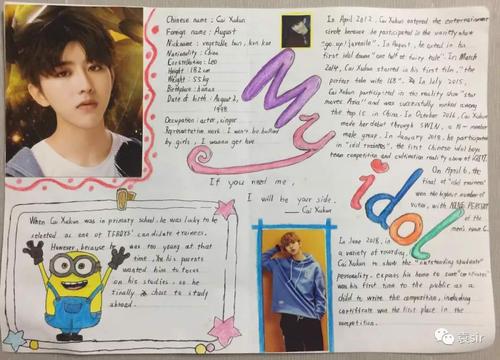 Chinese name : Cai Xukun
Foreign name : August
Nickname : vegetable bun, kun kun
Nationality : China
Constellation : Leo
Height : 182 cm
Weight : 55 kg
Birthplace : hunan
Date of birth : August 2,
1998
Occupation : actor, singer
Representative work : I wanna get love
by girls, I wanna get love
My
idol
In April 2012, Cai Xukun entered the entertainment
circle because he participated in the variety show
"go up! juvenile". In August, he acted in his
first idol drama "one tell of fairy tale". In March
2014, Cai Xukun starred in his first film, "the
perfect fake wife 168". In July 2015,
Cai Xukun participated in the reality show "star
moves Asia!" and was successfully ranked among
the top 15 in China. In October 2016, Cai Xukun
made her debut through SWIN, a
male group. In January 2018, he participated
in "idol trainees", the first Chinese idol boys
team competition and cultivation reality show of iQIYI.
On April 6, the
final of "idol trainees"
won the highest number of
votes, with NINE PERCENT
of the
men's name C.
If you need me,
I will be your side.
—— Cai Xukun
When Cai Xukun was in primary school, he was lucky to be
selected as one of TFBOYS' candidate trainees.
However, because he was too young at that
time, his parents
wanted him to focus
on his studies, so he
finally chose to study
abroad.
In June 2018, in
a variety of
Cai Xukun to show the "outstanding students"
personality.
was his first time to the public as a
child to write the composition, including
certificate won the first place in the
competition.
袁sir